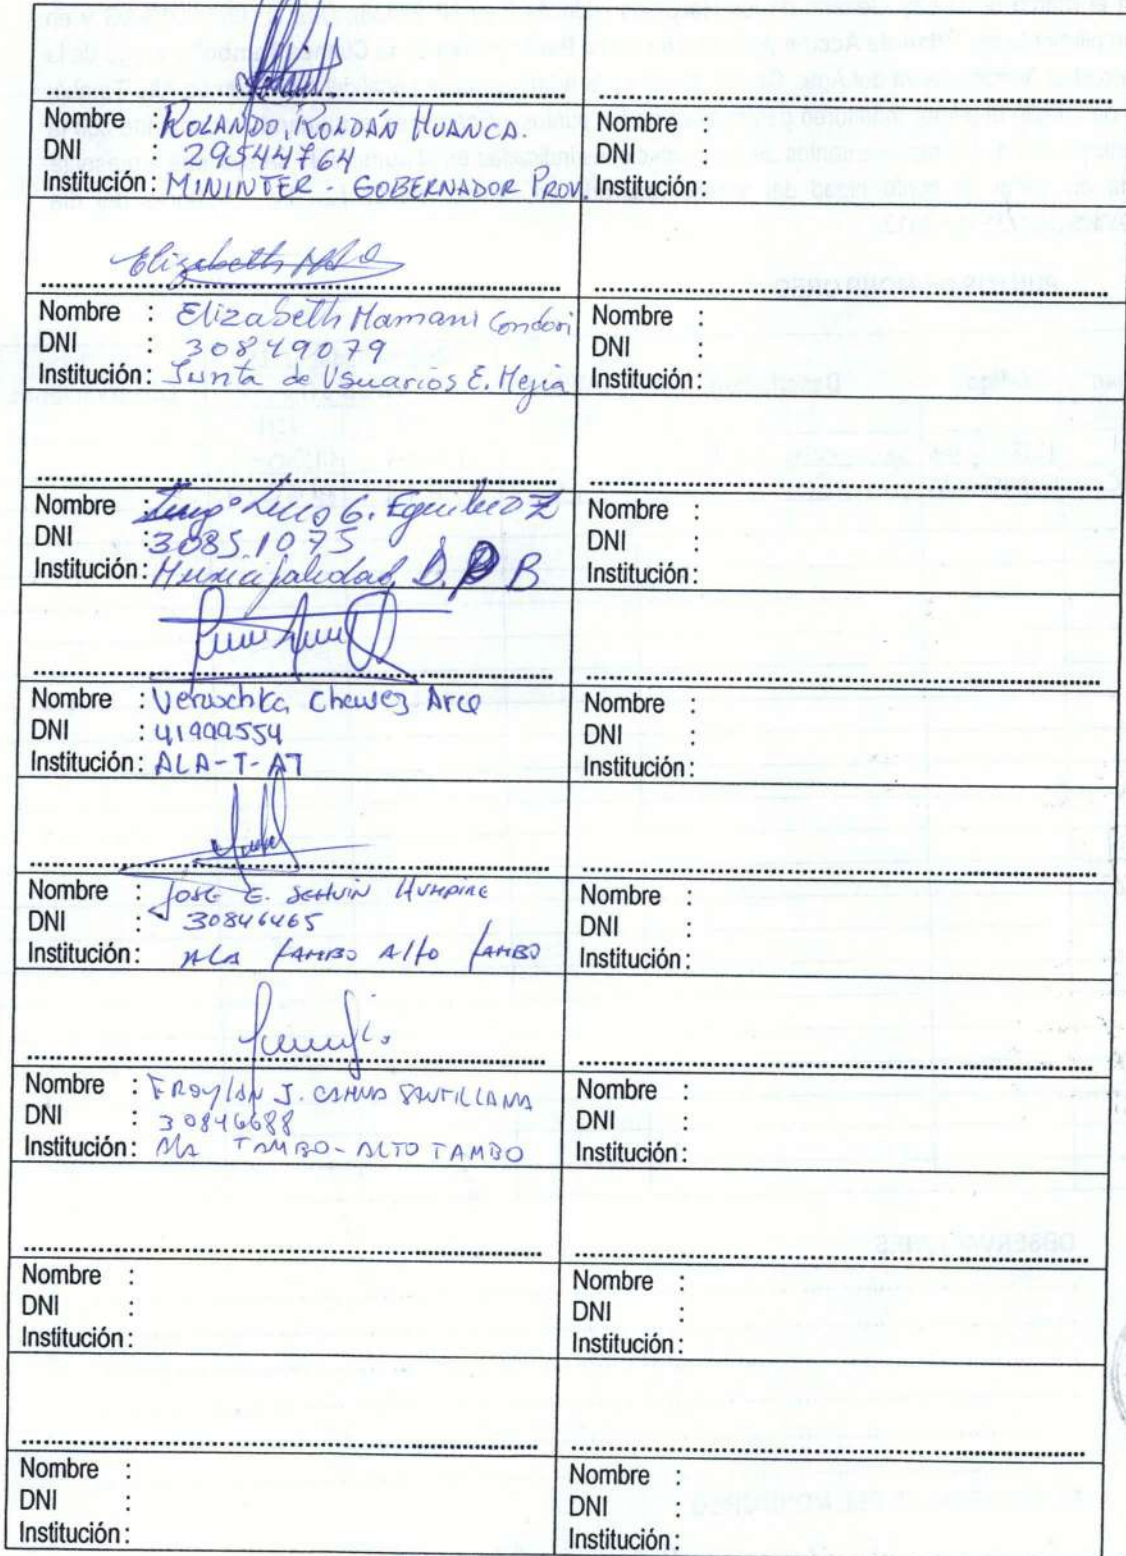 Nombre : ROLANDO, ROLDÁN HUANCA.
DNI : 29544764
Institución: MININTER - GOBERNADOR PROV.
Nombre
DNI :
Institución:
Elizabeth
Nombre : Elizabeth Mamani Condori
DNI : 30849079
Institución: Junta de Usuarios E. Mejia
Nombre :
DNI :
Institución:
Nombre : Lucio G.
DNI : 30851075
Institución: Municipalidad D. B
Nombre :
DNI :
Institución:
Nombre : Veruschka Chavez Arce
DNI : 41909554
Institución: ALA-T-AT
Nombre :
DNI :
Institución:
Nombre : JOSE E.
DNI : 30846465
Institución: ALA TAMBO Alto TAMBO
Nombre :
DNI :
Institución:
Nombre : FROYLAN J. SANTILLANA
DNI : 30846688
Institución: Ala TAMBO-ALTO TAMBO
Nombre :
DNI :
Institución:
Nombre :
DNI :
Institución:
Nombre :
DNI :
Institución:
Nombre :
DNI :
Institución:
Nombre :
DNI :
Institución: